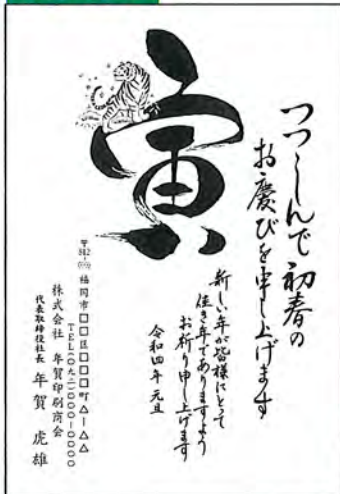 寅
つつしんで初春の
お慶びを申し上げます
新しい年が皆様にとって
佳き年でありますよう
お祈り申し上げます
令和四年 元旦
〒812-0000
福岡市□□区□□□町△-△△
TEL(〇九二)〇〇〇-〇〇〇〇
株式会社 年賀印刷商会
代表取締役社長 年賀 虎雄